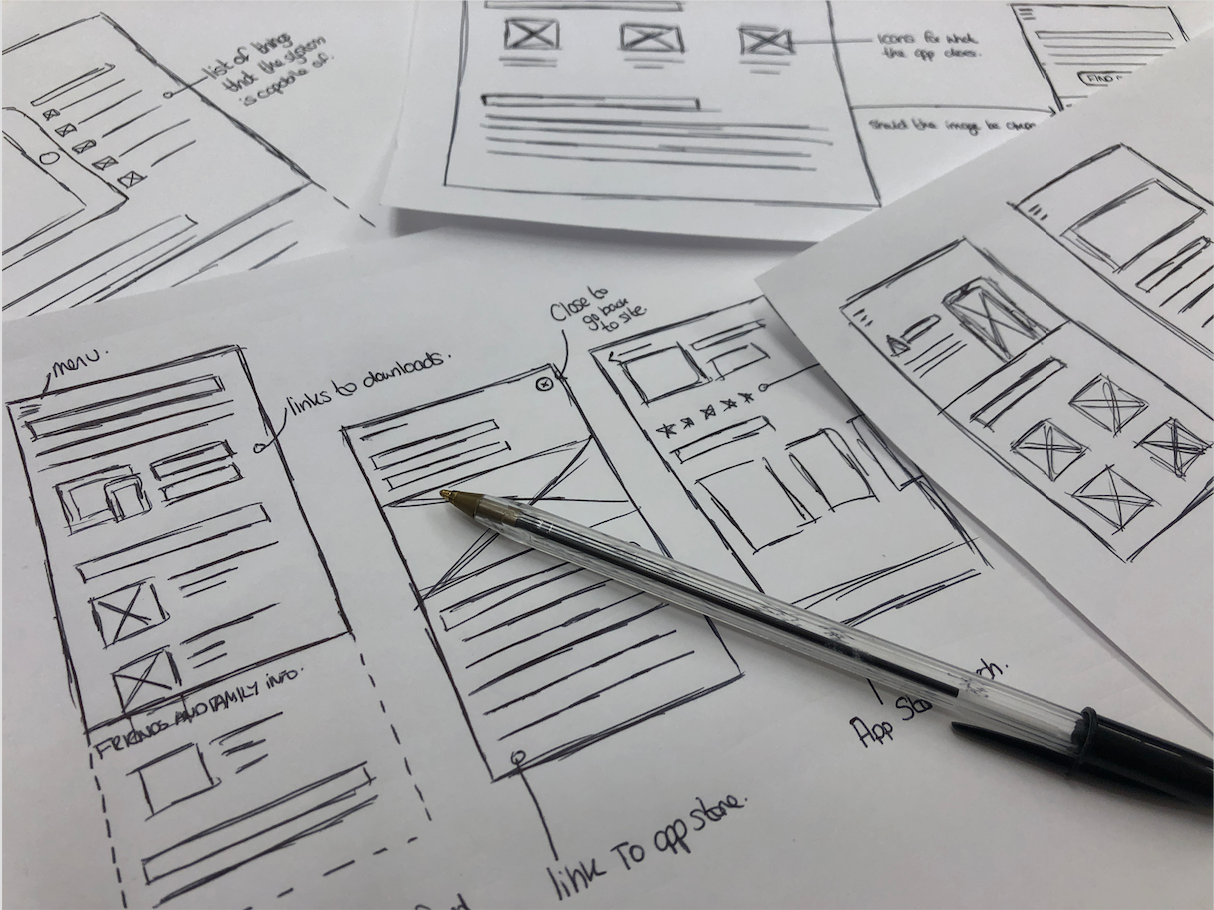 list of things
that the system
is capable of.
icons for what
the app does.
FIND
should the image be
menu.
links to downloads.
Close to
go back
to site
FRIENDS AND FAMILY INFO.
App
link To app store.